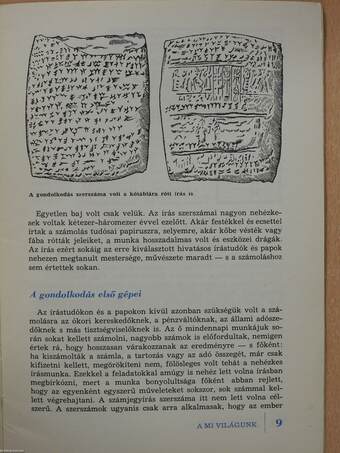 A gondolkodás szerszáma volt a kőtáblára rótt írás is
Egyetlen baj volt csak velük. Az írás szerszámai nagyon nehézke-
sek voltak kétezer-háromezer évvel ezelőtt. Akár festékkel és ecsettel
írtak a számolás tudósai papiruszra, selyemre, akár kőbe vésték vagy
fába rótták jeleiket, a munka hosszadalmas volt és eszközei drágák.
Az írás ezért sokáig az erre kiválasztott hivatásos írástudók és papok
nehezen megtanult mestersége, művészete maradt — s a számoláshoz
sem értettek sokan.
A gondolkodás első gépei
Az írástudókon és a papokon kívül azonban szükségük volt a szá-
molásra az ókori kereskedőknek, a pénzváltóknak, az állami adósze-
dőknek s más tisztségviselőknek is. Az ő mindennapi munkájuk so-
rán sokat kellett számolni, nagyobb számok is előfordultak, nemigen
értek rá, hogy hosszasan várakozzanak az eredményre — s főként:
ha kiszámolták a számla, a tartozás vagy az adó összegét, már csak
kifizetni kellett, megörökíteni nem, fölösleges volt tehát a nehézkes
írásmunka. Ezekkel a feladatokkal amúgy is nehéz lett volna írásban
megbirkózni, mert a munka bonyolultsága főként abban rejlett,
hogy az egyenként egyszerű műveleteket sokszor, sok számmal kel-
lett végrehajtani. A számjegyírás szerszáma itt nem lett volna cél-
szerű. A szerszámok ugyanis csak arra alkalmasak, hogy az ember
A MI VILÁGUNK
9